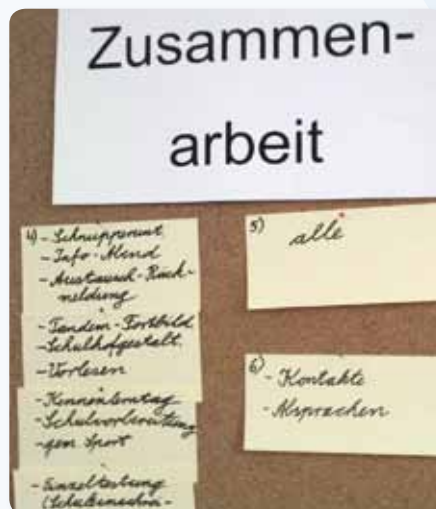 Zusammen-
arbeit
4) - Schnupperunt
- Info-Abend
- Austausch-Rück-
meldung
- Tandem-Fortbild
- Schulhofgestalt.
- Vorlesen
- Kennenlerntag
- Schulvorbereitung
- gem Sport
- Einzeltestung
(Schuleinschrei-
5) alle
6) - Kontakte
- Absprachen